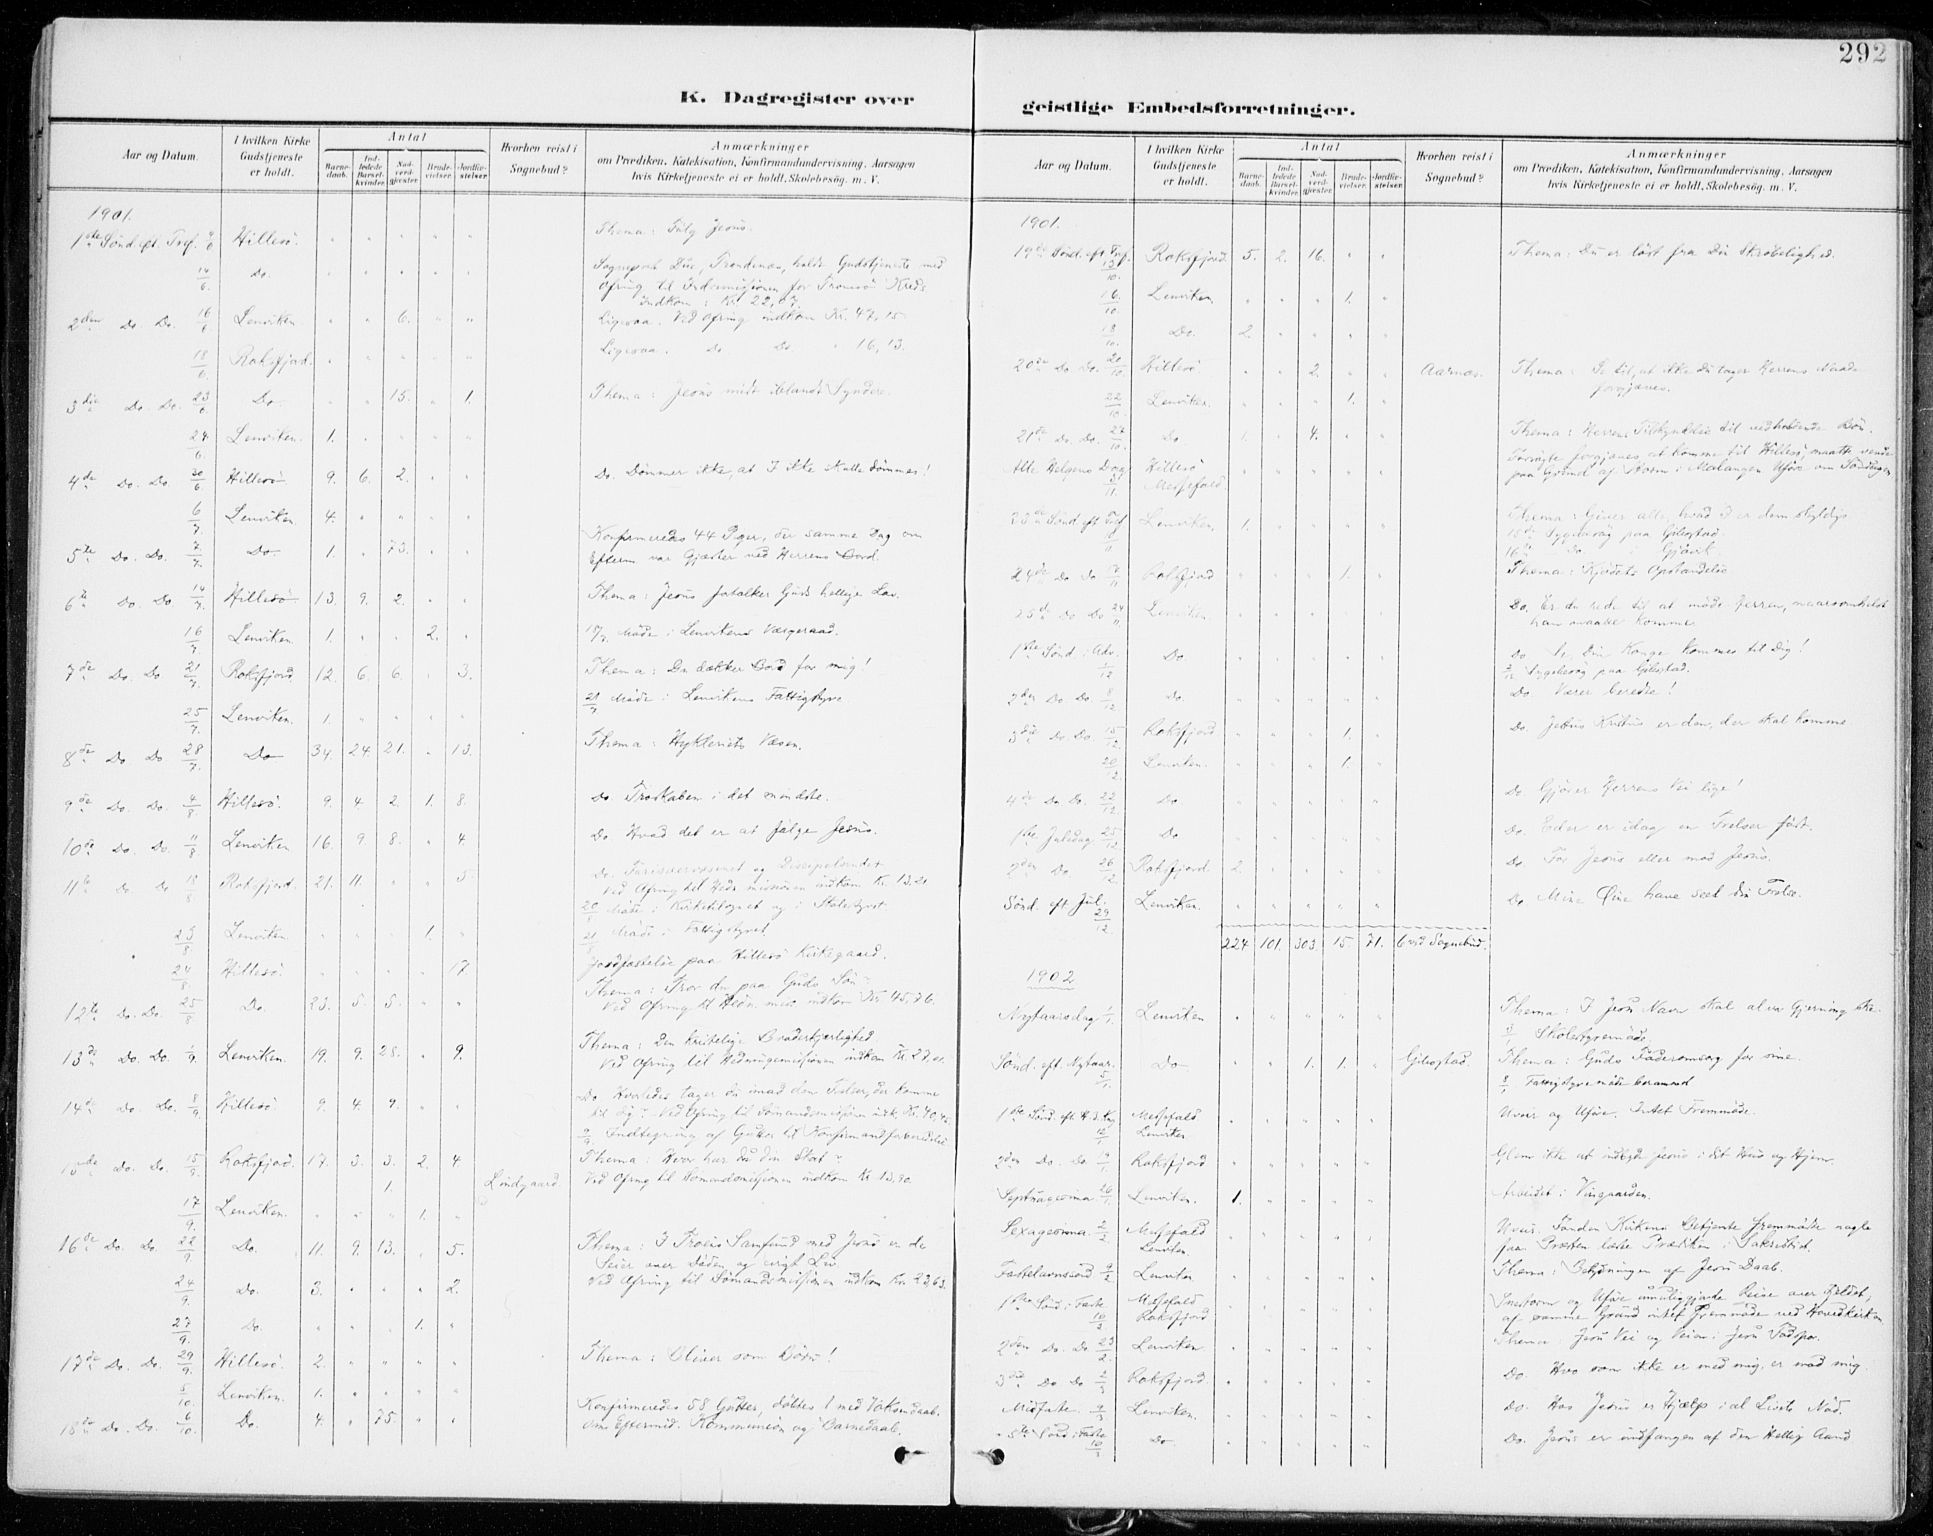 292
K. Dagregister over
Aar og Datum.
I hvilken Kirke Gudstjeneste er holdt.
Antal
Barnedaab.
Indledede Barselkvinder.
Nadverdgjester.
Brudevielser.
Jordfæstelser.
Hvorhen reist i Sognebud?
Anmærkninger
om Prædiken, Katekisation, Konfirmandundervisning, Aarsagen
hvis Kirketjeneste ei er holdt, Skolebesög. m. V.
1901.
1ste Sönd. eft. Tref. 9/6 Hillesö. Thema: Fölg Jesus.
14/6 Do. holdt Gudstjeneste med
Ofring til Indremissionen for Tromsö Kreds
Indkom: Kr. 22,07.
2den Do. Do. 16/6 Lenviken 6. Ligesaa. Ved Ofring indkom Kr. 47,15
18/6 Roksfjord. Ligesaa. Do Do. 16,13.
3die Do. Do. 23/6 Do. 15. 1. Thema: Jesus midt iblandt Syndere.
24/6 Lenviken. 1.
4de Do. Do. 30/6 Hillesö 9. 6. 2. Do. Dömmer ikke, at I ikke skulle dömmes!
6/7 Lenviken 4.
5te Do. Do. 7/7 Do. 1. 73. Konfirmeredes 44 Piger, der samme Dag om
Efterm. var Gjæster ved Herrens Bord.
6te Do. Do 14/7 Hillesö 13. 9. 2. Thema: Jesus Guds hellige Lov.
16/7 Lenviken. 1. 2. Möde i Lenvikens Værgeraad.
7de Do. Do 21/7 Roksfjord. 12. 6. 6. 3. Thema: Du dækker Bord for mig!
21/7 Möde i Lenvikens Fattigstyre
25/7 Lenviken. 1.
8de Do Do 28/7 Do 34. 24. 21. 13. Thema: Hykleriets Væsen.
9de Do. Do. 4/8 Hillesö. 9. 4 2. 1. 8. Do. Troskaben i det mindste.
10de Do. Do. 11/8 Lenviken 16. 9 8. 4. Do. Hvad det er at fölge Jesus.
11te Do Do 18/8 Roksfjord. 21. 11. 5 Do. og
Ved Ofring til indkom Kr. 13,21
20/8 Möde i Kirketilsynet og i Skolestyret.
23/8 Lenviken. 1. 21/8 Möde i Fattigstyret
24/8 Hillesö. 17. Jordfæstelse paa Hillesö Kirkegaard.
12te Do. Do. 25/8 Do. 23. 5. 5. Thema: Tror du paa Guds Sön?
Ved Ofring til indkom Kr. 45,76.
13de Do. Do. 1/9. Lenviken. 19. 9. 28. 9. Thema: Den kristelige Broderkjærlighed
Ved Ofring til Hedningemissionen indkom Kr. 27,
14de Do. Do. 8/9. Hillesö 9. 4. 9. Do Hvorledes tager du imod den Frelser, der komme
til dig? Ved Ofring til Sömandsmissionen indk. Kr. 40,
9/9. Indtegning af Gutter til Konfirmandforberedelse
15de Do. Do. 15/9. Roksfjord. 17. 3. 3. 2. 4 Thema: Hvor har du din Skat?
1. Lindgaard. Ved Ofring til Sömandsmissionen indkom Kr 13,90.
17/9. Lenviken. 1.
16de Do. Do. 22/9 Do. 11. 9. 13. 5. Thema: I Troens Samfund med Jesus er de
Seier over Döden og evigt Liv.
Ved Ofring til Sömandsmissionen indkom Kr. 23,63.
24/9. Do. 3. 2.
27/9. Do. 1.
17de Do. Do. 29/9. Hillesö. 2. Thema: Bliver som Börn!
5/10. Lenviken. 1.
18de Do. Do. 6/10. Do. 4. 75. Konfirmeredes 58 Gutter, döbtes 1 med Voksendaab.
Om Eftermid. Kommunion og Barnedaab.
geistlige Embedsforretninger.
Aar og Datum.
I hvilken Kirke Gudstjeneste er holdt.
Antal
Barnedaab.
Indledede Barselkvinder.
Nadverdgjester.
Brudevielser.
Jordfæstelser.
Hvorhen reist i Sognebud?
Anmærkninger
om Prædiken, Katekisation, Konfirmandundervisning, Aarsagen
hvis Kirketjeneste ei er holdt, Skolebesög. m. V.
1901.
19de Sönd. eft Tref. 13/10. Roksfjord. 5. 2. 16. Thema: Du er löst fra Din Skröbelighed.
16/10. Lenviken 1.
18/10. Do. 2.
20de Do. Do. 20/10 Hillesö 2. Aarnes. Thema: Se til, at ikke du tager Herrens Naade
forgjæves.
22/10. Lenviken. 1.
21de Do. Do. 27/10. Do 1. 4. Thema: Herrens Tilskyndelse til vedholdende Bön.
Alle Helgens Dag 3/11. Hillesö Messefald. Forsögte forgjæves at komme til Hillesö, maatte vende
paa Grund af Storm i Malangen. Uföre om Söndagen
23de Sönd. eft Tref. Lenviken. 1. Thema: Giver alle, hvad I er dem skyldige
15de Sygebesög paa Gibostad.
16de Do. Gjövik
24de Do Do 17/11 Roksfjord 1. Thema: Kjödets Opstandelse
25de Do Do 24/11 Lenviken Do. Er du rede til at möde Herren, naarsomhelst
han maatte komme
1ste Sönd i Adv. 1/12 Do. Do Se, Din Konge kommer til Dig!
Sygebesög paa Gibostad.
2den Do Do 8/12 Do Do Værer beredte!
3die Do Do 15/12. Roksfjord 1. Do. Jesus Kristus er den, der skal komme
20/12. Lenviken. 1.
4de Do Do. 22/12 Do Do Gjörer Herrens Vei lige!
1ste Juledag 25/12 Do Do. Eder er idag en Frelser födt.
2den Do 26/12. Roksfjord 2. Do For Jesus eller mod Jesus.
Sönd. eft Jul. 29/12. Lenviken. Do Mine Öine have seet din Frelse.
224 101. 303 15. 71. 6 ved Sognebud.
1902
Nytaarsdag 1/1. Lenviken Thema: I Jesu Navn skal al vor Gjerning ske.
Skolestyremöde.
Sönd. eft. Nytaar 5/1. Do 1. 1. Gibostad. Thema: Guds Faderomsorg for sine.
8/1 Fattigstyremöde berammet
1ste Sönd eft H. 3. Kng 12/1 Messefald Lenviken Uveir og Uföre. Intet Fremmöde.
2den Do. Do. 19/1 Roksfjord Glem ikke at indbyde Jesus i dit Hus og Hjem.
Septuagesima 26/1. Lenviken. 1. Arbeidet i Vingaarden.
Sexagesima 2/2 Messefald Lenviken. Uveir. Foruden Kirkens Betjente fremmödte nogle
faa. Præsten læste Prædiken i Sakristiet.
Fastelavnssönd. 9/2 Lenviken Thema: Betydningen af Jesu Daab.
1ste Sönd i Faste 16/2 Messefald Roksfjord Snestorm og Uföre umuliggjorde Reise over Fjeldet,
af samme Grund intet Fremmöde ved Hovedkirken
2den Do. Do. 23/2. Lenviken Thema: Jesu Vei og Veien i Jesu Fodspor.
3die Do Do 2/3 Roksfjord. Do. Hvo som ikke er med mig, er mod mig.
Midfaste. 9/3 Lenviken. Do. Hos Jesus er Hjælp i al Livets Nöd.
5te Sönd i Faste 16/3 Do. Do. Jesus er undfangen af den Hellig Aand